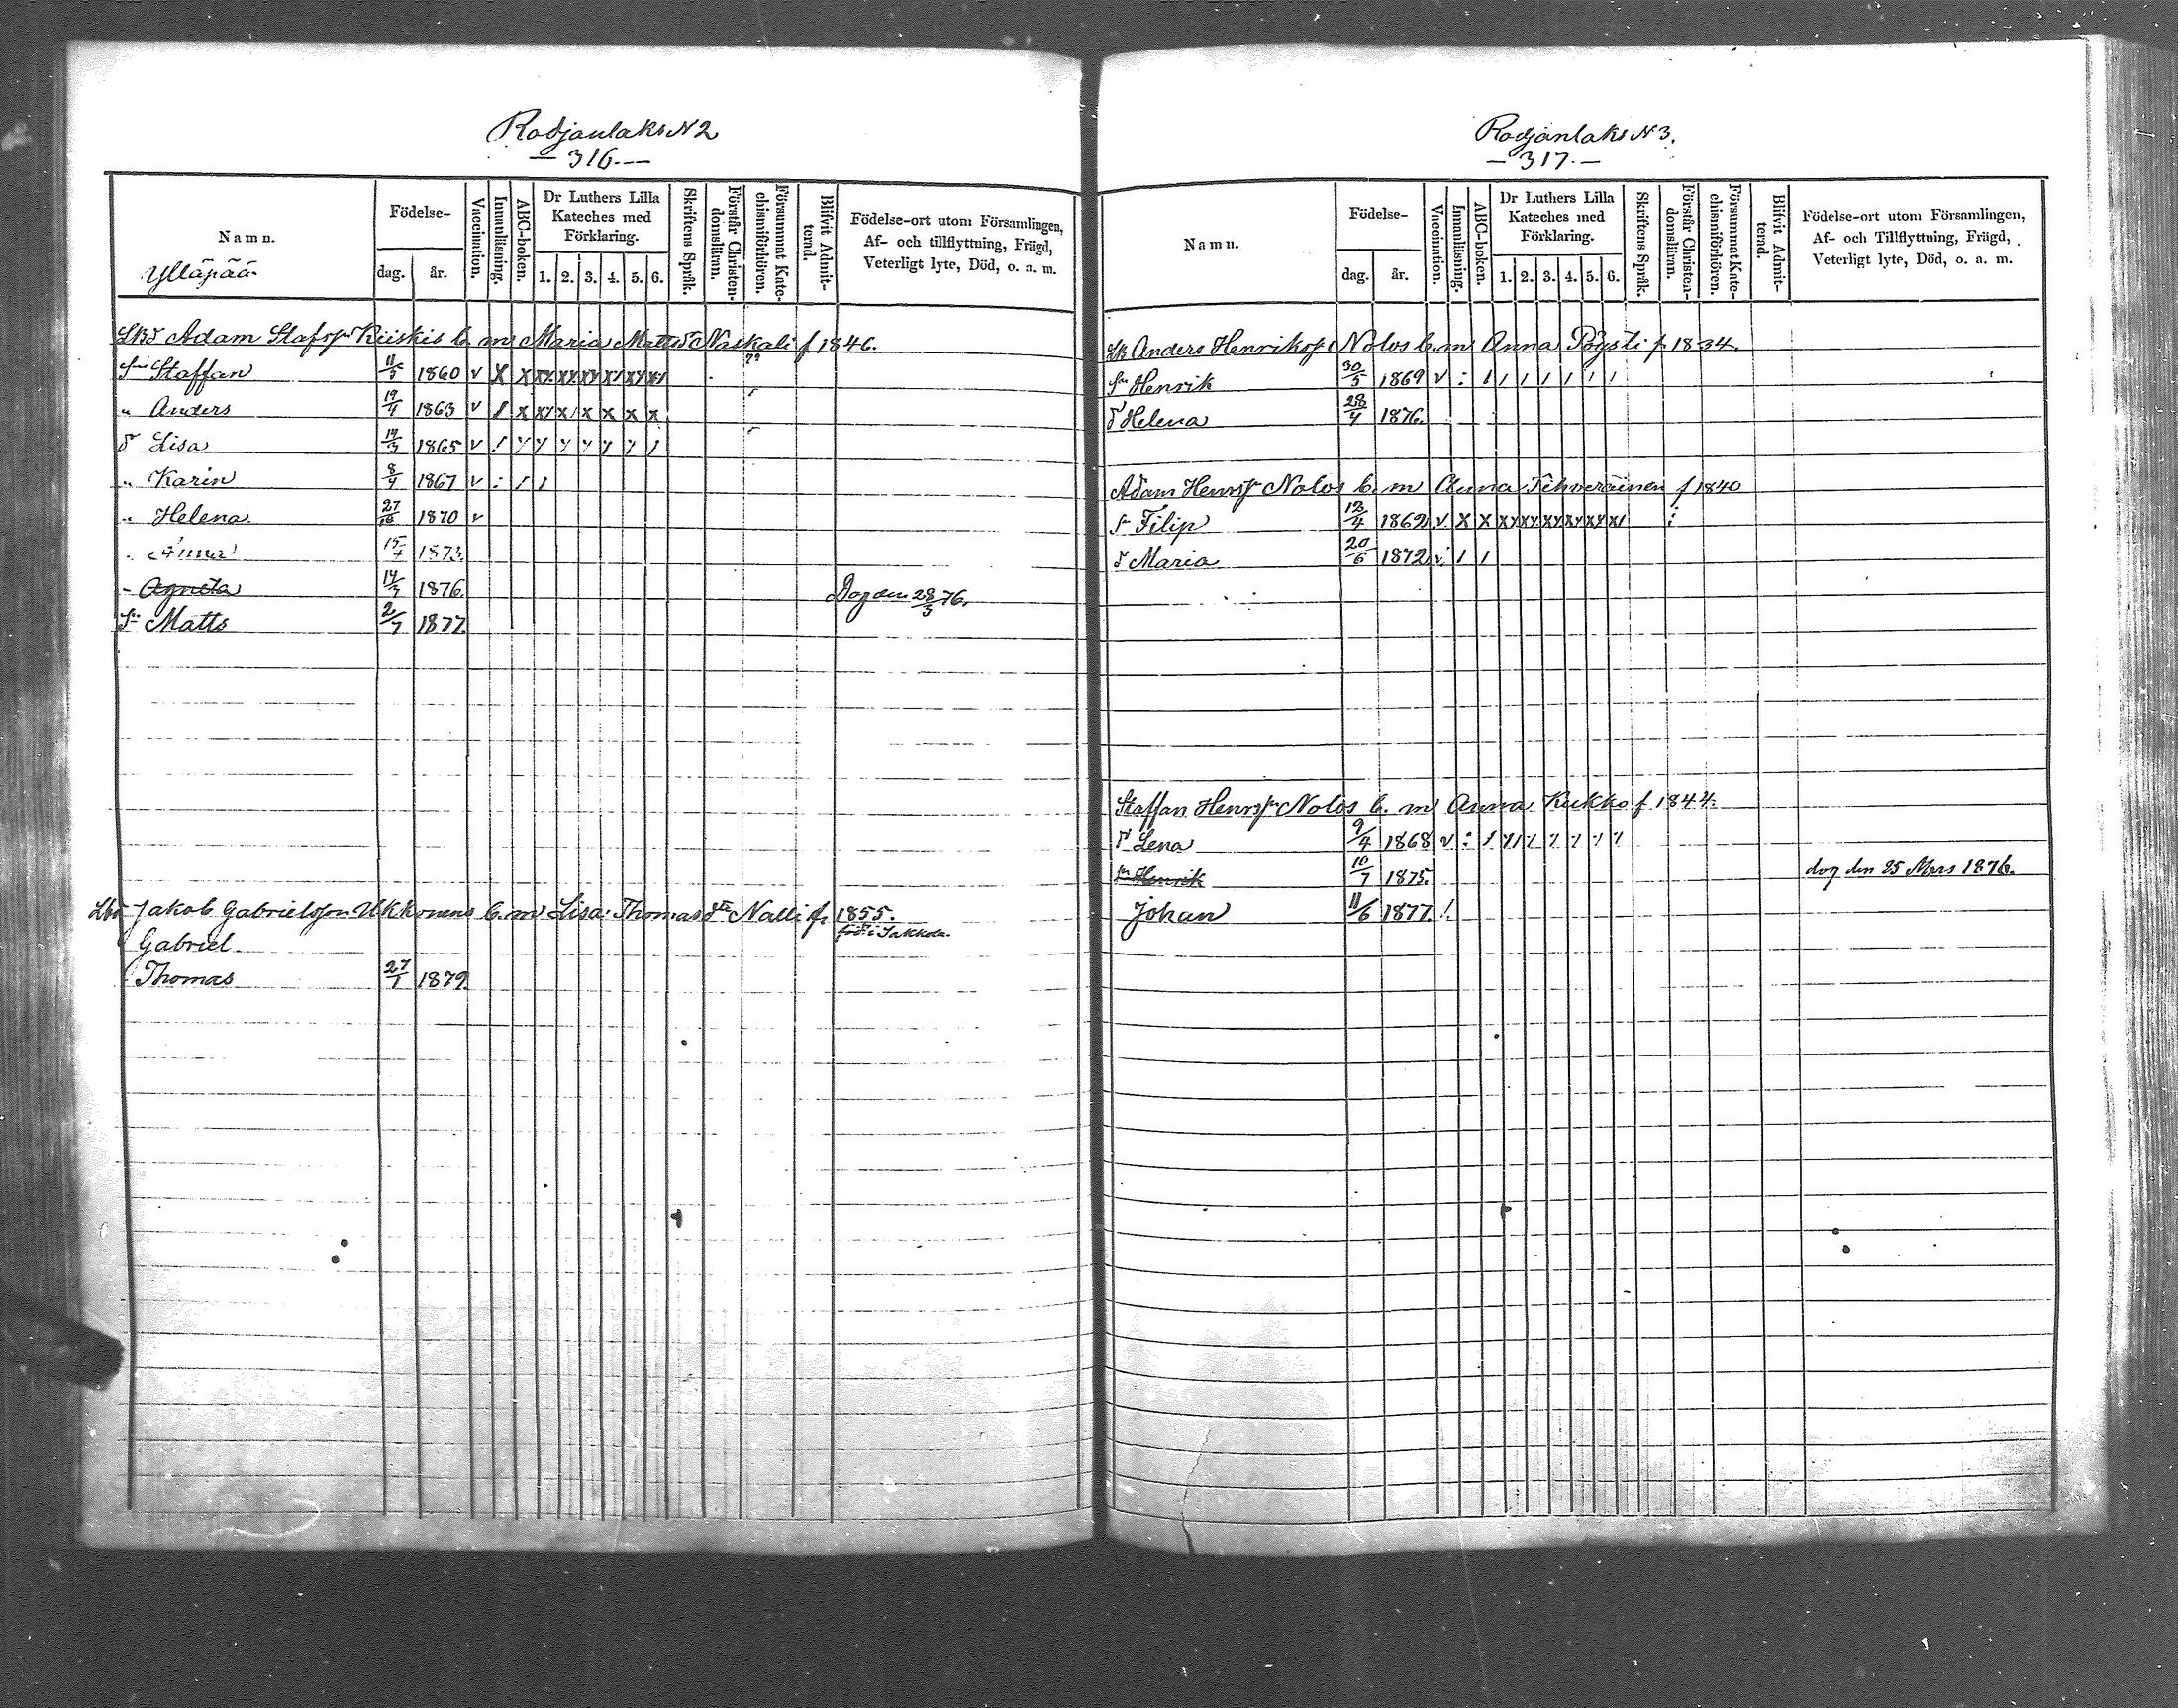 Rodjanlaks N 2
— 316. —
Namn.
Födelse-
dag.
år.
Vaccination.
Innanläsning.
ABC-boken.
Dr Luthers Lilla
Kateches med
Förklaring.
1. 2. 3. 4. 5. 6.
Skriftens Språk.
Förstår Christen-
domsläran.
Försummat Kate-
chismiförhören.
Blifvit Admit-
terad.
Födelse-ort utom Församlingen,
Af- och tillflyttning, Frägd,
Veterligt lyte, Död, o. a. m.
Ylläpää
Adam Stafsn Kiiskis b. m Maria Mattsd Naskali f 1846.
Sn Staffan 1860 v X X xy xy xy xy xy
" Anders 19/4 1863 v / x xy x/ x x x x
d Lisa 1865 v
" Karin 8/4 1867 v
" Helena 27/10 1870 v
1873.
- Agneta 1876. Dog den 28/3 76.
Sn Matts 2/7 1877.
Jakob Gabrielsson Ukkonens b. m Lisa Thomas dr Nalli f. 1855.
född i Sakkola.
Gabriel
Thomas 27/1 1879.
Rodjanlaks N 3.
— 317. —
Namn.
Födelse-
dag.
år.
Vaccination.
Innanläsning.
ABC-boken.
Dr Luthers Lilla
Kateches med
Förklaring.
1. 2. 3. 4. 5. 6.
Skriftens Språk.
Förstår Christen-
domsläran.
Försummat Kate-
chismiförhören.
Blifvit Admit-
terad.
Födelse-ort utom Församlingen,
Af- och Tillflyttning, Frägd,
Veterligt lyte, Död, o. a. m.
Anders Henriks Nolos b. m Anna Pöysti f. 1834.
sn Henrik 30/5 1869 v : / / / / / / /
d Helena 28/4 1876.
Adam Henrs Nolos b. m Anna Tihveräinen f 1840
sn Filip 1862 v X X xy xy xy xy xy x/
d Maria 20/6 1872 v / /
Staffan Henrs Nolos b. m Anna Kukko f 1844.
d Lena 9/4 1868 v : /
sn Henrik 10/7 1875. dog den 25 Mars 1876.
Johan 11/6 1877. /.